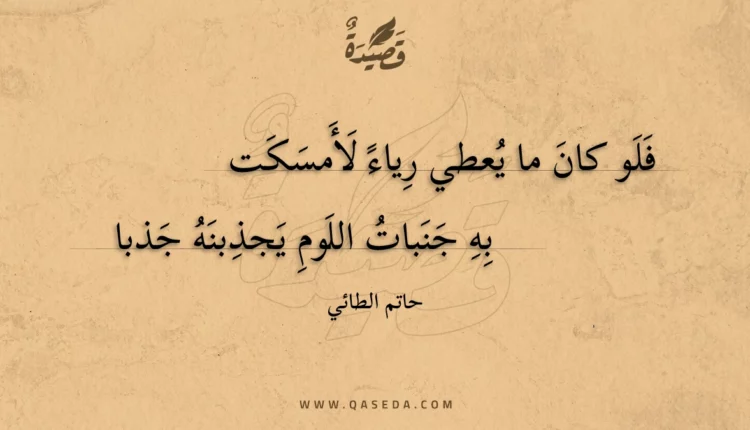 قَصِيْدَةٌ
فَلَو كانَ ما يُعطي رِياءً لَأَمسَكَت
بِهِ جَنَباتُ اللَومِ يَجذِبنَهُ جَذبا
حاتم الطائي
WWW.QASEDA.COM